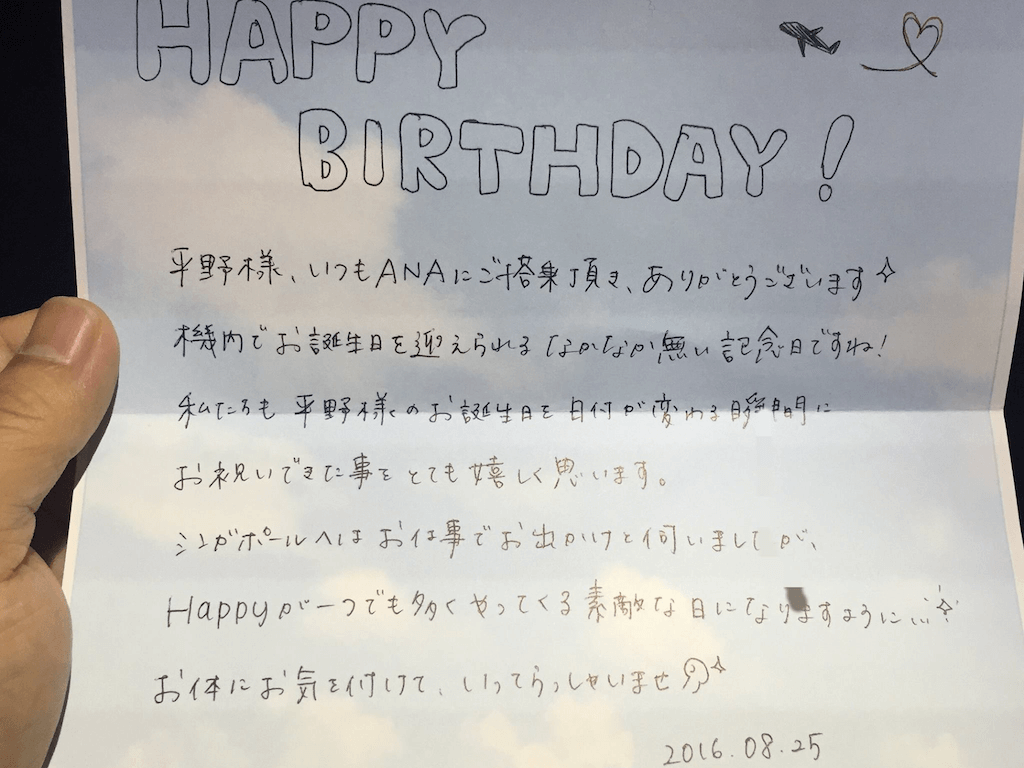 HAPPY
BIRTHDAY!
平野様、いつもANAにご搭乗頂き、ありがとうございます
機内でお誕生日を迎えられるなかなか無い記念日ですね!
私たちも平野様のお誕生日を日付が変わる瞬間に
お祝いできた事をとても嬉しく思います。
シンガポールへはお仕事でお出かけと伺いましたが、
Happyが一つでも多くやってくる素敵な日になりますように...
お体にお気を付けて、いってらっしゃいませ
2016.08.25